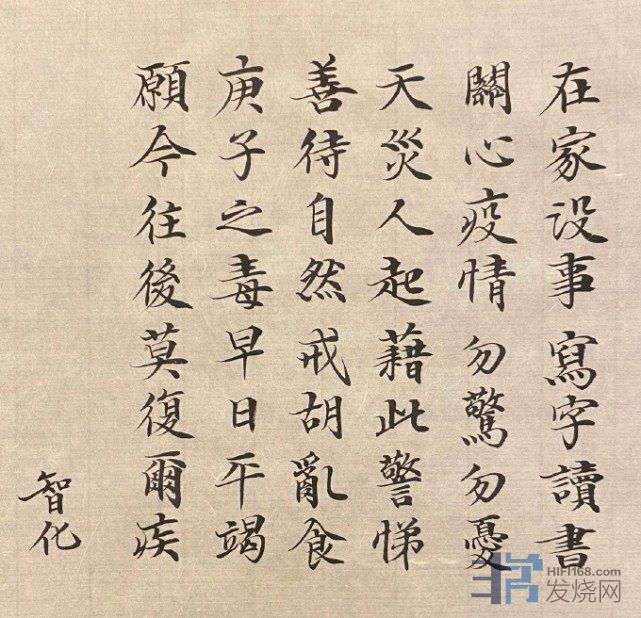 在家没事寫字讀書
關心疫情勿驚勿憂
天災人起藉此警悌
善待自然戒胡亂食
庚子之毒早日平竭
願今往後莫復爾疾
智化
HIFI168.com
发烧网